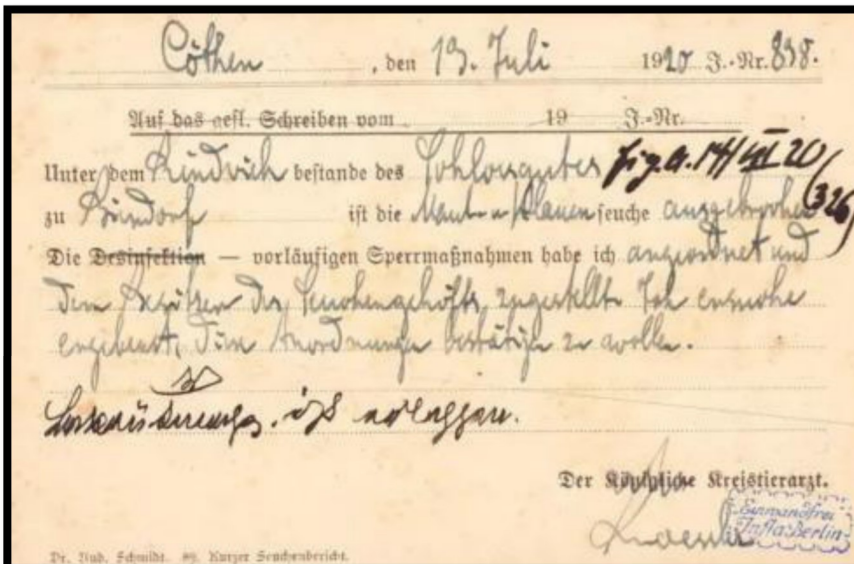 Cöthen, den 13. Juli 1920 J.-Nr. 898.
Auf das gefl. Schreiben vom 19 J.-Nr.
Unter dem Rindvieh bestande des Schlossgutes
zu ist die Maul- u. Klauen seuche ausgebrochen (326)
Die Desinfektion — vorläufigen Sperrmaßnahmen habe ich angeordnet und
dem Besitzer des Seuchengehöfts zugestellt. Ich ersuche
ergebenst, diese Anordnungen bestätigen zu wollen.
ist erlassen.
Der Königliche Kreistierarzt.
Einwandfrei
Infla-Berlin
Dr. Rud. Schmidt. Kurzer Seuchenbericht.